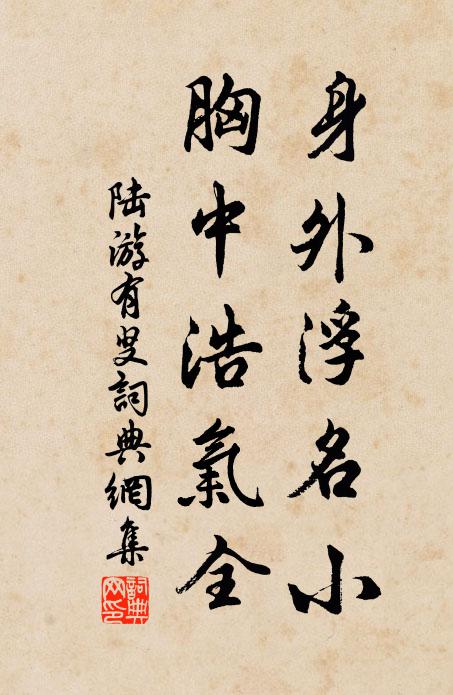 身外浮名小
胸中浩氣全
陸游有叟詞典網集
詞典
网印